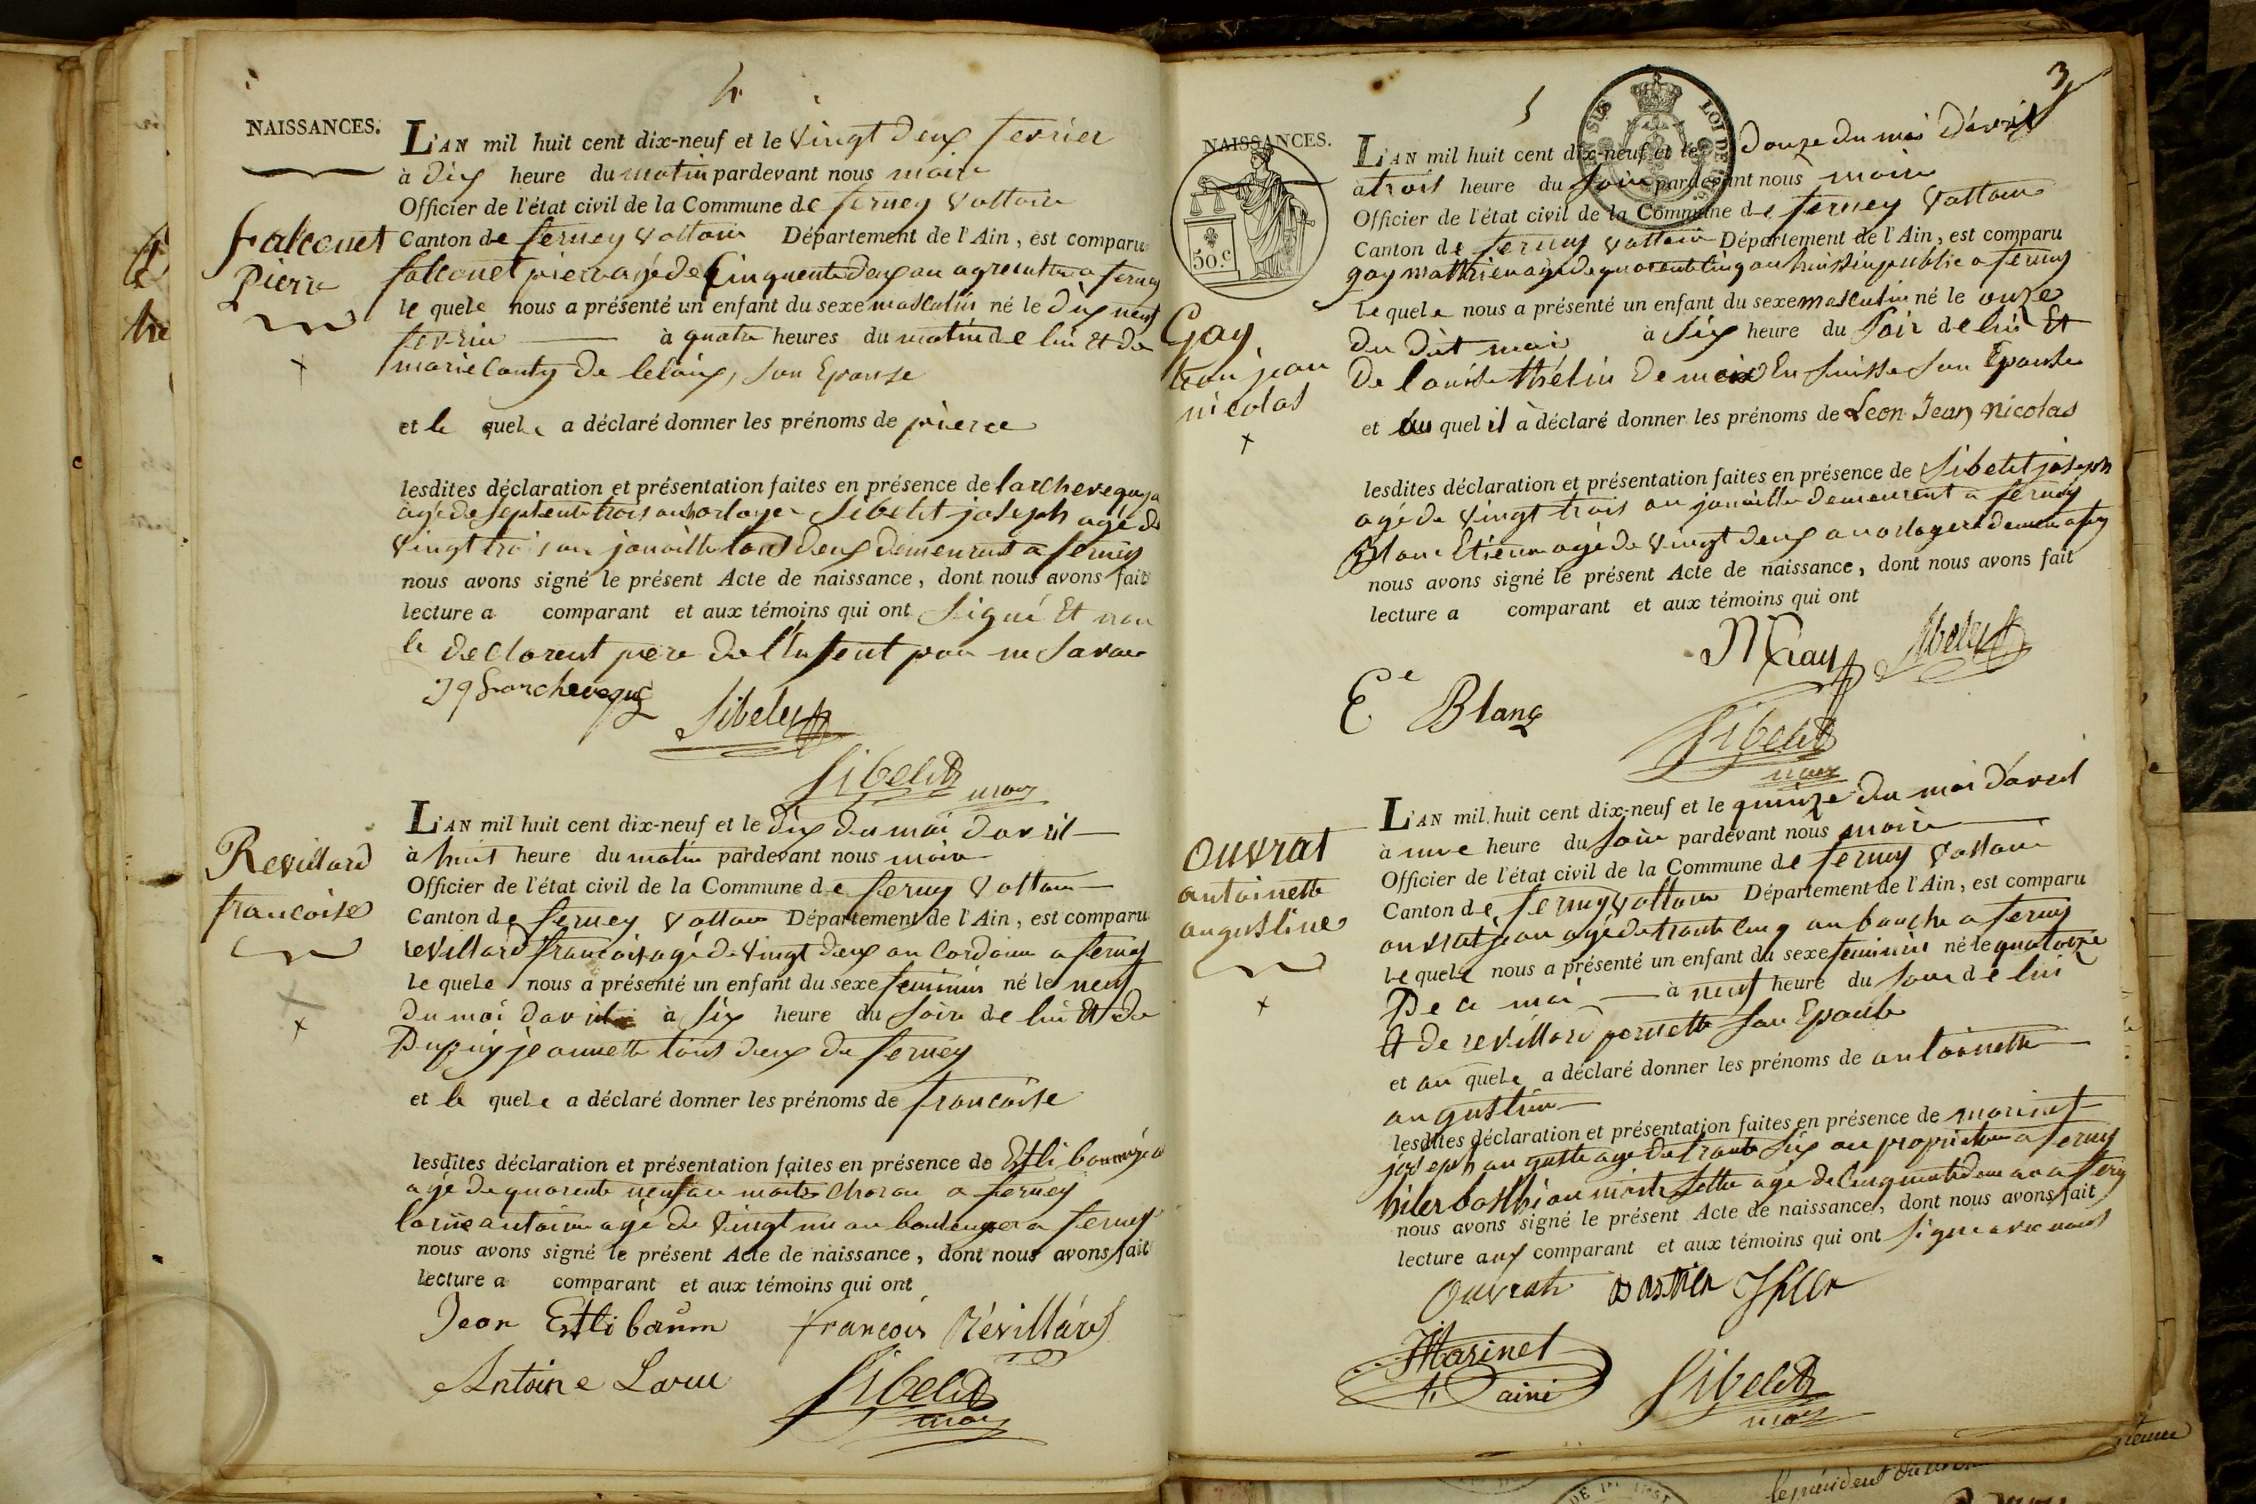 4
NAISSANCES.
L'AN mil huit cent dix-neuf et le vingt deux fevrier
à dix heure du matin pardevant nous maire
Officier de l'état civil de la Commune de ferney Voltaire
Falconet
Pierre
Canton de ferney voltaire Département de l'Ain, est comparu
falconet pierre agé de Cinquente deux an agriculteur a ferney
le quele nous a présenté un enfant du sexe masculin né le dix neuf
fevrier à quatre heures du matin de lui Et de
marie Canty de lelaix, son Epouse
et le quele a déclaré donner les prénoms de pierre
lesdites déclaration et présentation faites en présence de larcheveque
agé de septente trois an horloger Sibelit joseph agé de
vingt trois an jouaillie tout deux demeurant a ferney
nous avons signé le présent Acte de naissance, dont nous avons fait
lecture a comparant et aux témoins qui ont signé Et non
le declarent pere de l'Enfent pour ne savoir
Jq Larcheveque
Sibelit
Sibelit
maire
Revillard
francoise
L'AN mil huit cent dix-neuf et le dix du moi davril
à huit heure du matin pardevant nous maire
Officier de l'état civil de la Commune de ferney Voltaire
Canton de ferney voltaire Département de l'Ain, est comparu
revillard francois agé de vingt deux an Cordonie a ferney
le quele nous a présenté un enfant du sexe feminin né le neuf
du moi davril à six heure du soire de lui Et de
Dupuy jeannette tout deux de ferney
et le quele a déclaré donner les prénoms de francoise
lesdites déclaration et présentation faites en présence de Estlibaum
agé de quarente neuf an a ferney
larue antoine agé de vingt un an boulenger a ferney
nous avons signé le présent Acte de naissance, dont nous avons fait
lecture a comparant et aux témoins qui ont
Jean Estlibaum françois Révillard
Antoine Larue
Sibelit
maire
5
3
NAISSANCES.
50.c
LOI DE
L'AN mil huit cent dix-neuf et le douze du moi d'avril
à trois heure du soire pardevant nous maire
Officier de l'état civil de la Commune de ferney Voltaire
Canton de ferney voltaire Département de l'Ain, est comparu
gay mathieu agé de quarente cinq an huissier public a ferney
le quele nous a présenté un enfant du sexe masculin né le onze
Gay
leon jean
nicolas
du dit moi à six heure du soir de lui Et
de louise thélin de En suisse son Epouse
et au quel il à déclaré donner les prénoms de Leon Jean nicolas
lesdites déclaration et présentation faites en présence de Sibelit joseph
agé de vingt trois an jouaillie demeurent a ferney
Blanc Etienne agé de vingt deux an orlogere
nous avons signé le présent Acte de naissance, dont nous avons fait
lecture a comparant et aux témoins qui ont
MGay Sibelit
Ee Blanc
Sibelit
maire
ouvrat
antoinette
augustine
L'AN mil huit cent dix-neuf et le quinze du moi d'avril
à une heure du soire pardevant nous maire
Officier de l'état civil de la Commune de ferney Voltaire
Canton de ferney voltaire Département de l'Ain, est comparu
ouvrat jean agé de trante cinq an bouche a ferney
le quele nous a présenté un enfant du sexe feminin né le quatorze
De ce moi à neuf heure du soire de lui
Et de revillard pernette son Epouse
et au quele a déclaré donner les prénoms de antoinette
augustine
lesdites déclaration et présentation faites en présence de marinet
joseph auguste agé de trante six an proprietaire a ferney
hiler basthian agé de Cinquante deux an a ferney
nous avons signé le présent Acte de naissance, dont nous avons fait
lecture aux comparant et aux témoins qui ont signe avec nous
Ouvrat
Marinet
ainé
Sibelit
maire
le président du